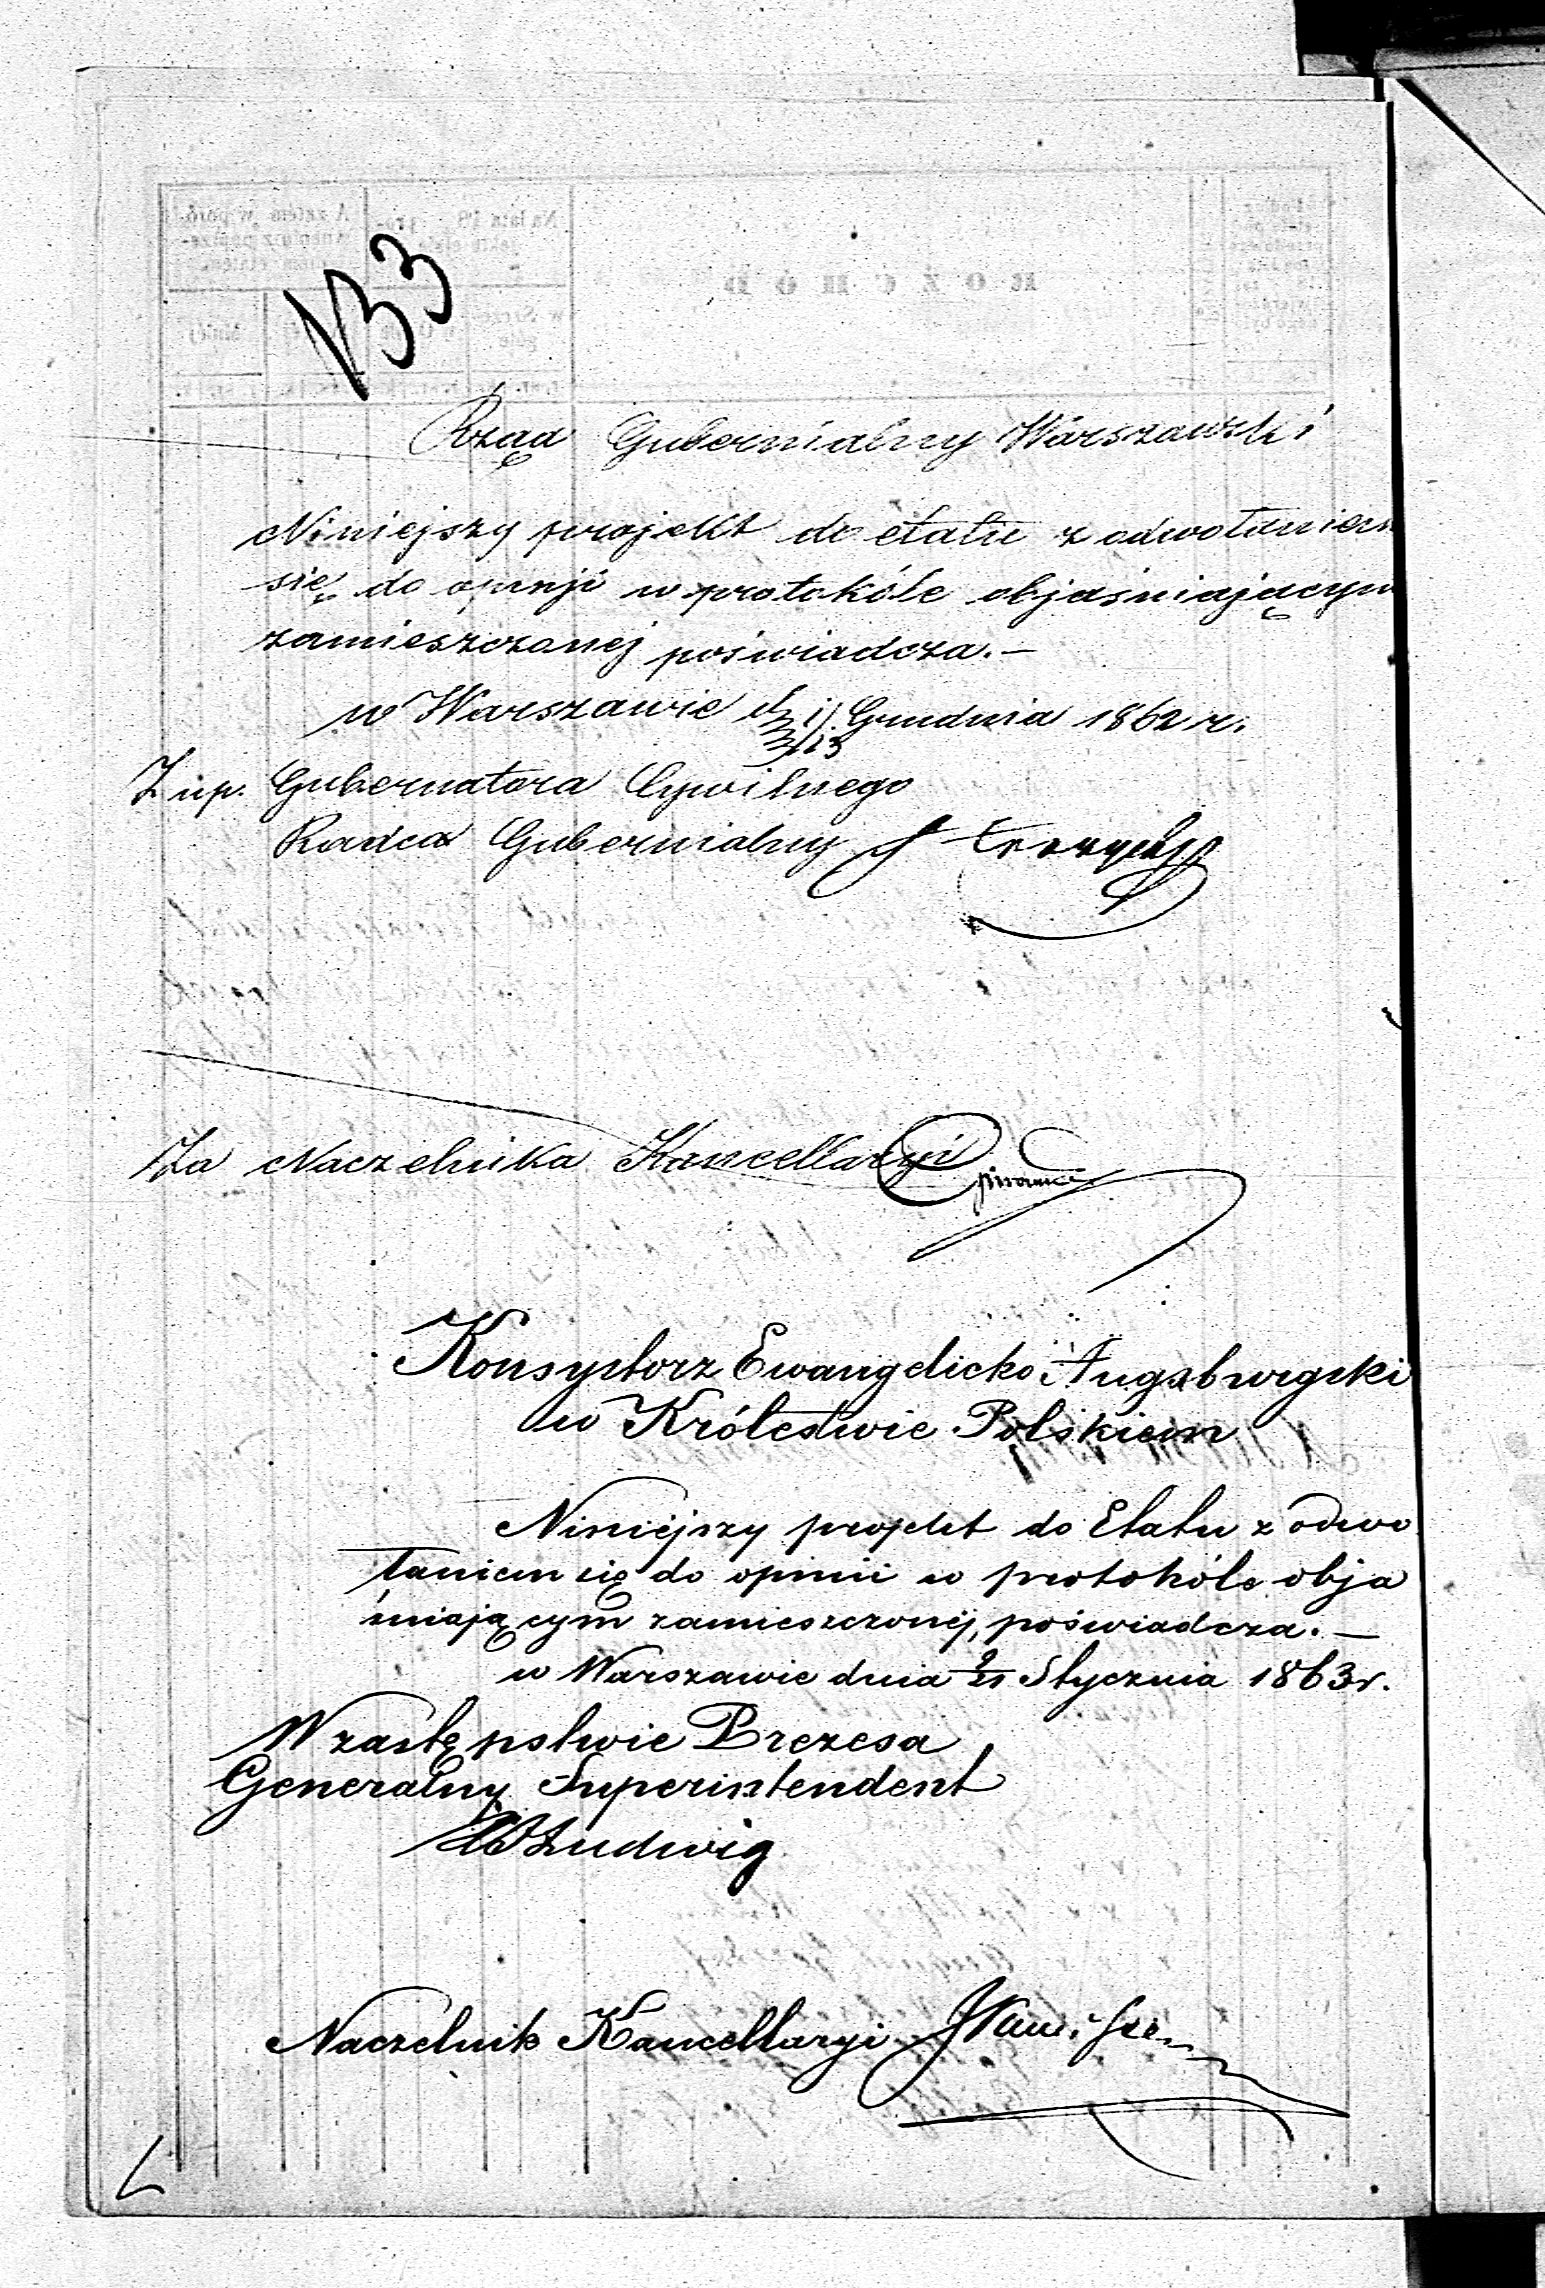 133
Rząd Gubernialny Warszawski
Niniejszy projekt do etatu z odwołaniem
się do opinji w protokóle objaśniającym
zamieszczonej poświadcza.—
w Warszawie d. Grudnia 1862 r.
Z up. Gubernatora Cywilnego
Radca Gubernialny
Za Naczelnika Kancellaryi
Konsystorz Ewangelicko Augsburgski
w Królestwie Polskiem
Niniejszy projekt do Etatu z odwo
łaniem się do opinii w protokóle obja
śniającym zamieszczonéj, poświadcza.—
w Warszawie dnia 9/21 Stycznia 1863 r.
W zastępstwie Prezesa
Generalny Superintendent
Ludwig
Naczelnik Kancellaryi